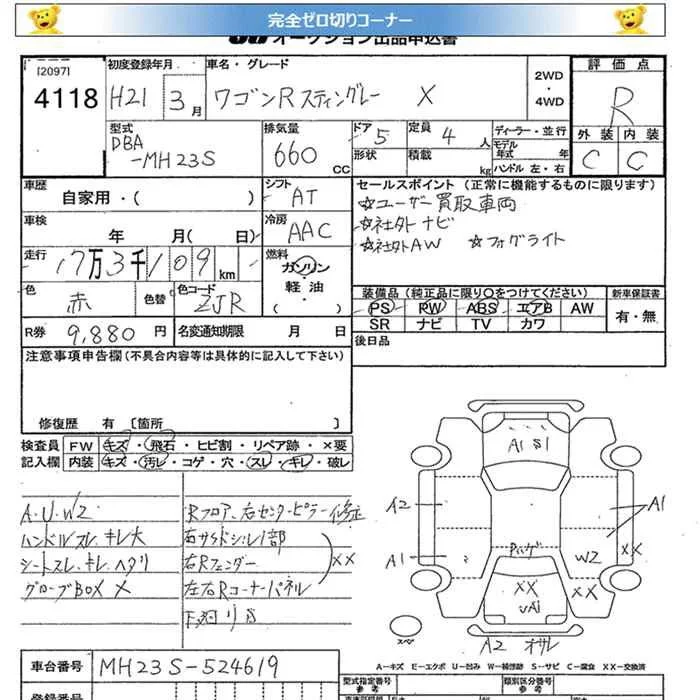 完全ゼロ切りコーナー
オークション出品申込書
[2097]
4118
初度登録年月 車名・グレード 2WD・4WD 評価点
H21 3月 ワゴンRスティングレー X R
型式 排気量 ドア 定員 ディーラー・並行 外装 内装
DBA-MH23S 660cc 5 4人 C C
形状 積載 kg モデル年式 年 ハンドル 左・右
車歴 自家用・( )
シフト AT
セールスポイント (正常に機能するものに限ります)
☆ユーザー買取車両
☆社外ナビ
☆社外AW ☆フォグライト
車検 年 月( 日)
冷房 AAC
走行 17万3千109km
燃料 ガソリン 軽油
色 赤 色替 色コード ZJR
装備品 (純正品に限り○をつけてください) 新車保証書
PS PW ABS エアB AW 有・無
SR ナビ TV カワ
R券 9,880円 名変通知期限 月 日
後日品
注意事項申告欄 (不具合内容等は具体的に記入して下さい)
修復歴 有 [箇所 ]
検査員 FW キズ・飛石・ヒビ割・リペア跡・×要
記入欄 内装 キズ・汚レ・コゲ・穴・スレ・キレ・破レ
A・U・W2
ハンドルスレ、キレ大
シートスレ、キレ、ヘタリ
グローブBOX X
Rフロア、右センターピラー修正
右サイドシル1部
右Rフェンダー XX
左右Rコーナーパネル
A1 S1
A2
A1
A1
W2
XX
XX
A2
A-キズ E-エクボ U-凹み W-補修跡 S-サビ C-腐食 XX-交換済
車台番号 MH23S-524619
登録番号
型式指定番号 参考 類別区分番号 参考